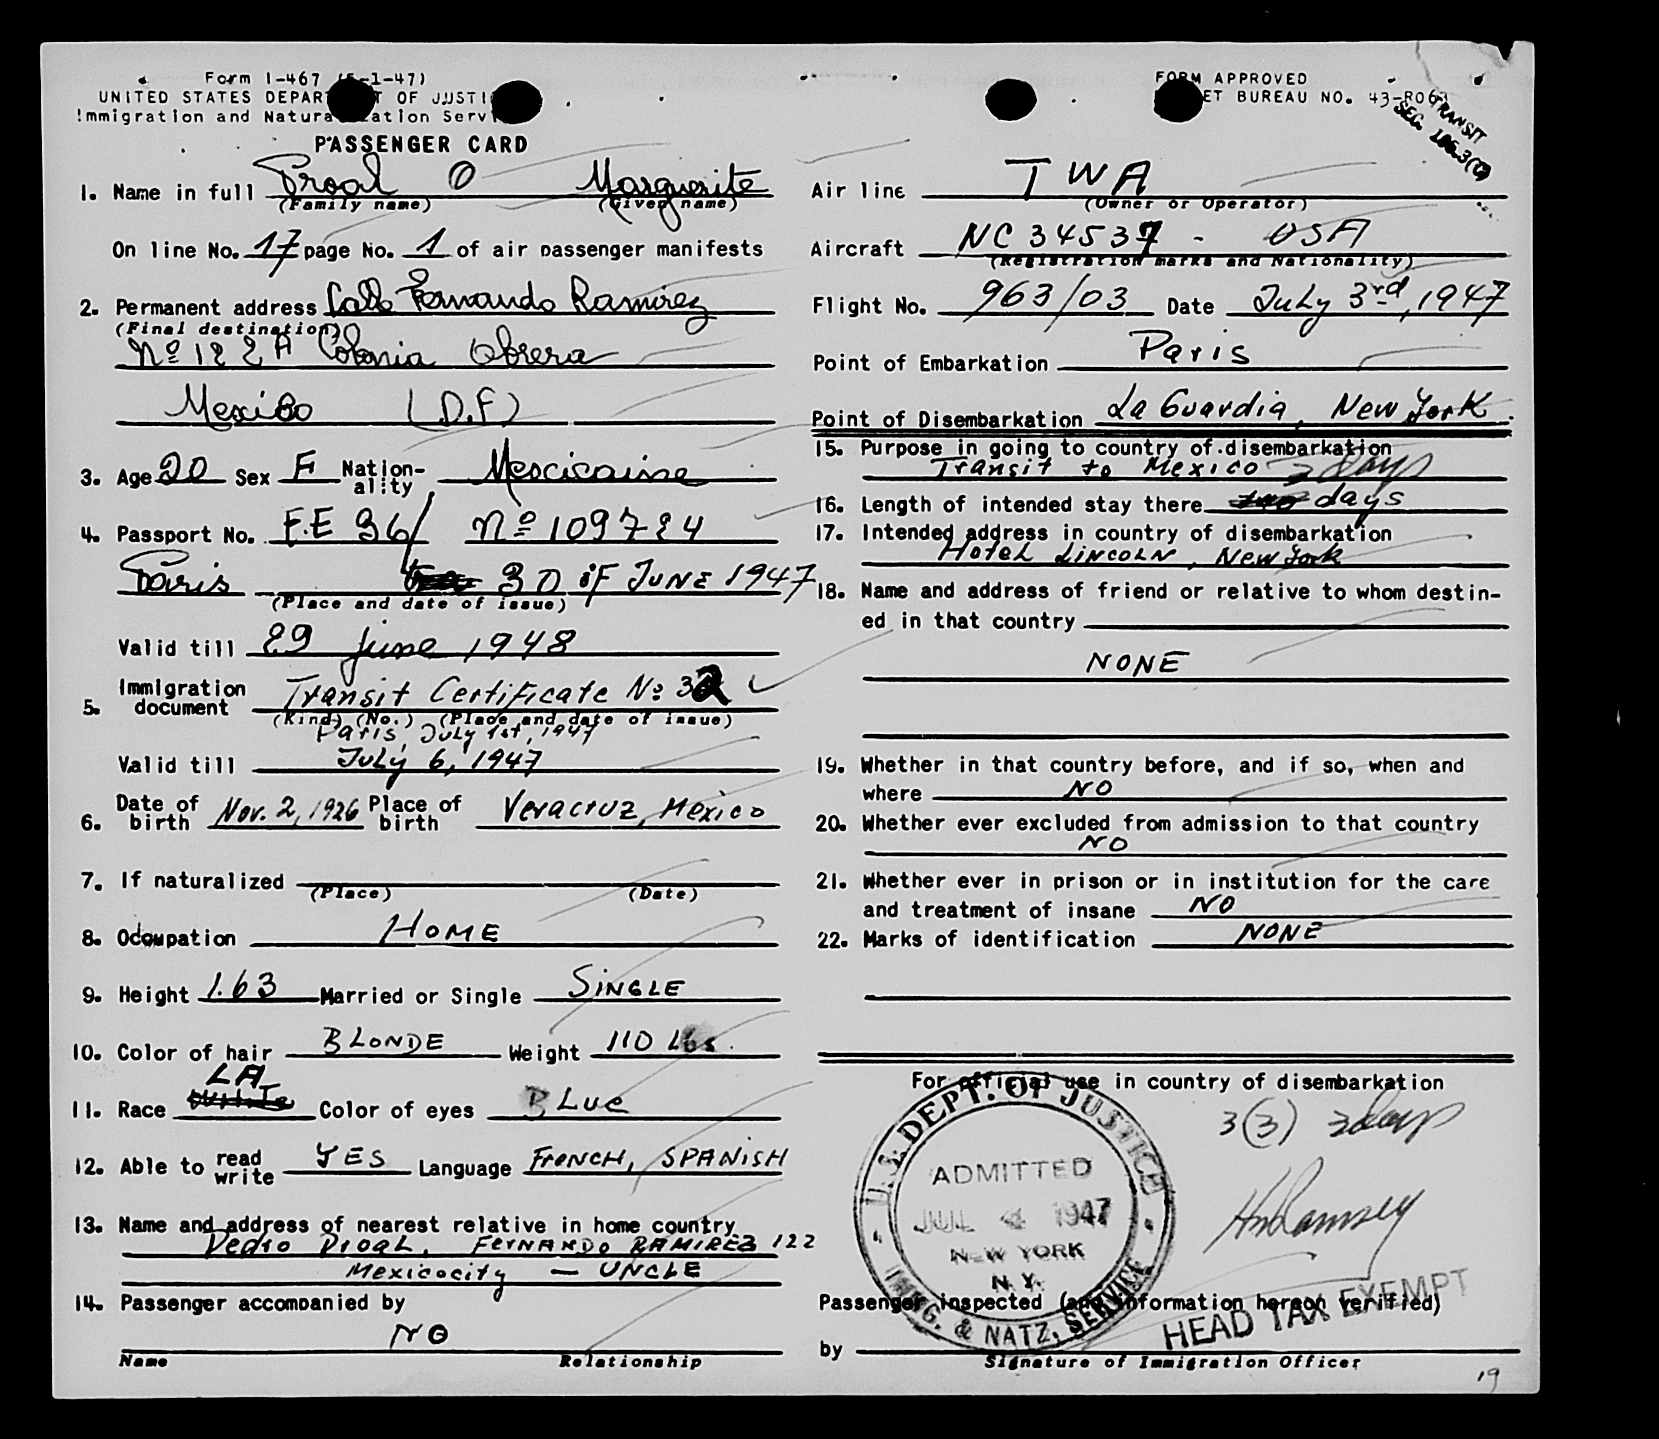 Form I-467 (5-1-47)
UNITED STATES DEPARTMENT OF JUSTICE
Immigration and Naturalization Service
PASSENGER CARD
1. Name in full Proal O Marguerite
(Family name) (Given name)
On line No. 17 page No. 1 of air passenger manifests
2. Permanent address Calle Fernando Ramirez
(Final destination)
Nº 122 A Colonia Obrera
Mexico (D.F)
3. Age 20 Sex F Nation-ality Mexicaine
4. Passport No. F.E 36/ Nº 109724
Paris 30 of JUNE 1947
(Place and date of issue)
Valid till 29 june 1948
5. Immigration document Transit Certificate Nº 32
(Kind) (No.) (Place and date of issue)
Paris, July 1st, 1947
Valid till July 6, 1947
6. Date of birth Nov. 2, 1926 Place of birth Veracruz, Mexico
7. If naturalized
(Place) (Date)
8. Occupation HOME
9. Height 1.63 Married or Single SINGLE
10. Color of hair BLONDE Weight 110 Lbs.
LA
11. Race White Color of eyes BLue
12. Able to read write YES Language FrENCH, SPANISH
13. Name and address of nearest relative in home country
Pedro ProaL, FerNANDO RAMIREZ 122
Mexicocity — UNCLE
14. Passenger accompanied by
NO
Name Relationship
FORM APPROVED
BUREAU NO. 43-R063
TRANSIT
SEC.
Air line TWA
(Owner or Operator)
Aircraft NC 34537 - USA
(Registration marks and Nationality)
Flight No. 963/03 Date July 3rd, 1947
Point of Embarkation Paris
Point of Disembarkation La Guardia, New York.
15. Purpose in going to country of disembarkation
Transit to Mexico 3 days
16. Length of intended stay there two days
17. Intended address in country of disembarkation
Hotel LINCOLN, New York
18. Name and address of friend or relative to whom destin-
ed in that country
NONE
19. Whether in that country before, and if so, when and
where NO
20. Whether ever excluded from admission to that country
NO
21. Whether ever in prison or in institution for the care
and treatment of insane NO
22. Marks of identification NONE
For official use in country of disembarkation
3(3) 3 days
U.S. DEPT. OF JUSTICE
ADMITTED
JUL 4 1947
NEW YORK
N.Y.
IMMG. & NATZ. SERVICE
HmRamsey
Passenger inspected (and information hereon verified)
HEAD TAX EXEMPT
by
Signature of Immigration Officer
19